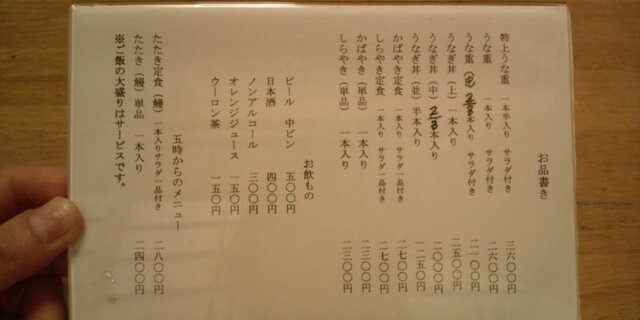 お品書き
特上うな重 一本半入り サラダ付き 三六〇〇円
うな重 一本入り サラダ付き 二六〇〇円
うな重（中）2/3本入り サラダ付き 二一〇〇円
うなぎ丼（上）一本入り 二五〇〇円
うなぎ丼（中）2/3本入り 二〇〇〇円
うなぎ丼（並）半本入り 一二五〇円
かばやき定食 一本入り サラダ一品付き 二七〇〇円
しらやき定食 一本入り サラダ一品付き 二七〇〇円
かばやき（単品） 一本入り 二三〇〇円
しらやき（単品） 一本入り 二三〇〇円
お飲もの
ビール 中ビン 五〇〇円
日本酒 四〇〇円
ノンアルコール 三〇〇円
オレンジジュース 一五〇円
ウーロン茶 一五〇円
五時からのメニュー
たたき定食（鰻）一本入りサラダ一品付き 二八〇〇円
たたき（鰻）単品 一本入り 二四〇〇円
※ご飯の大盛りはサービスです。